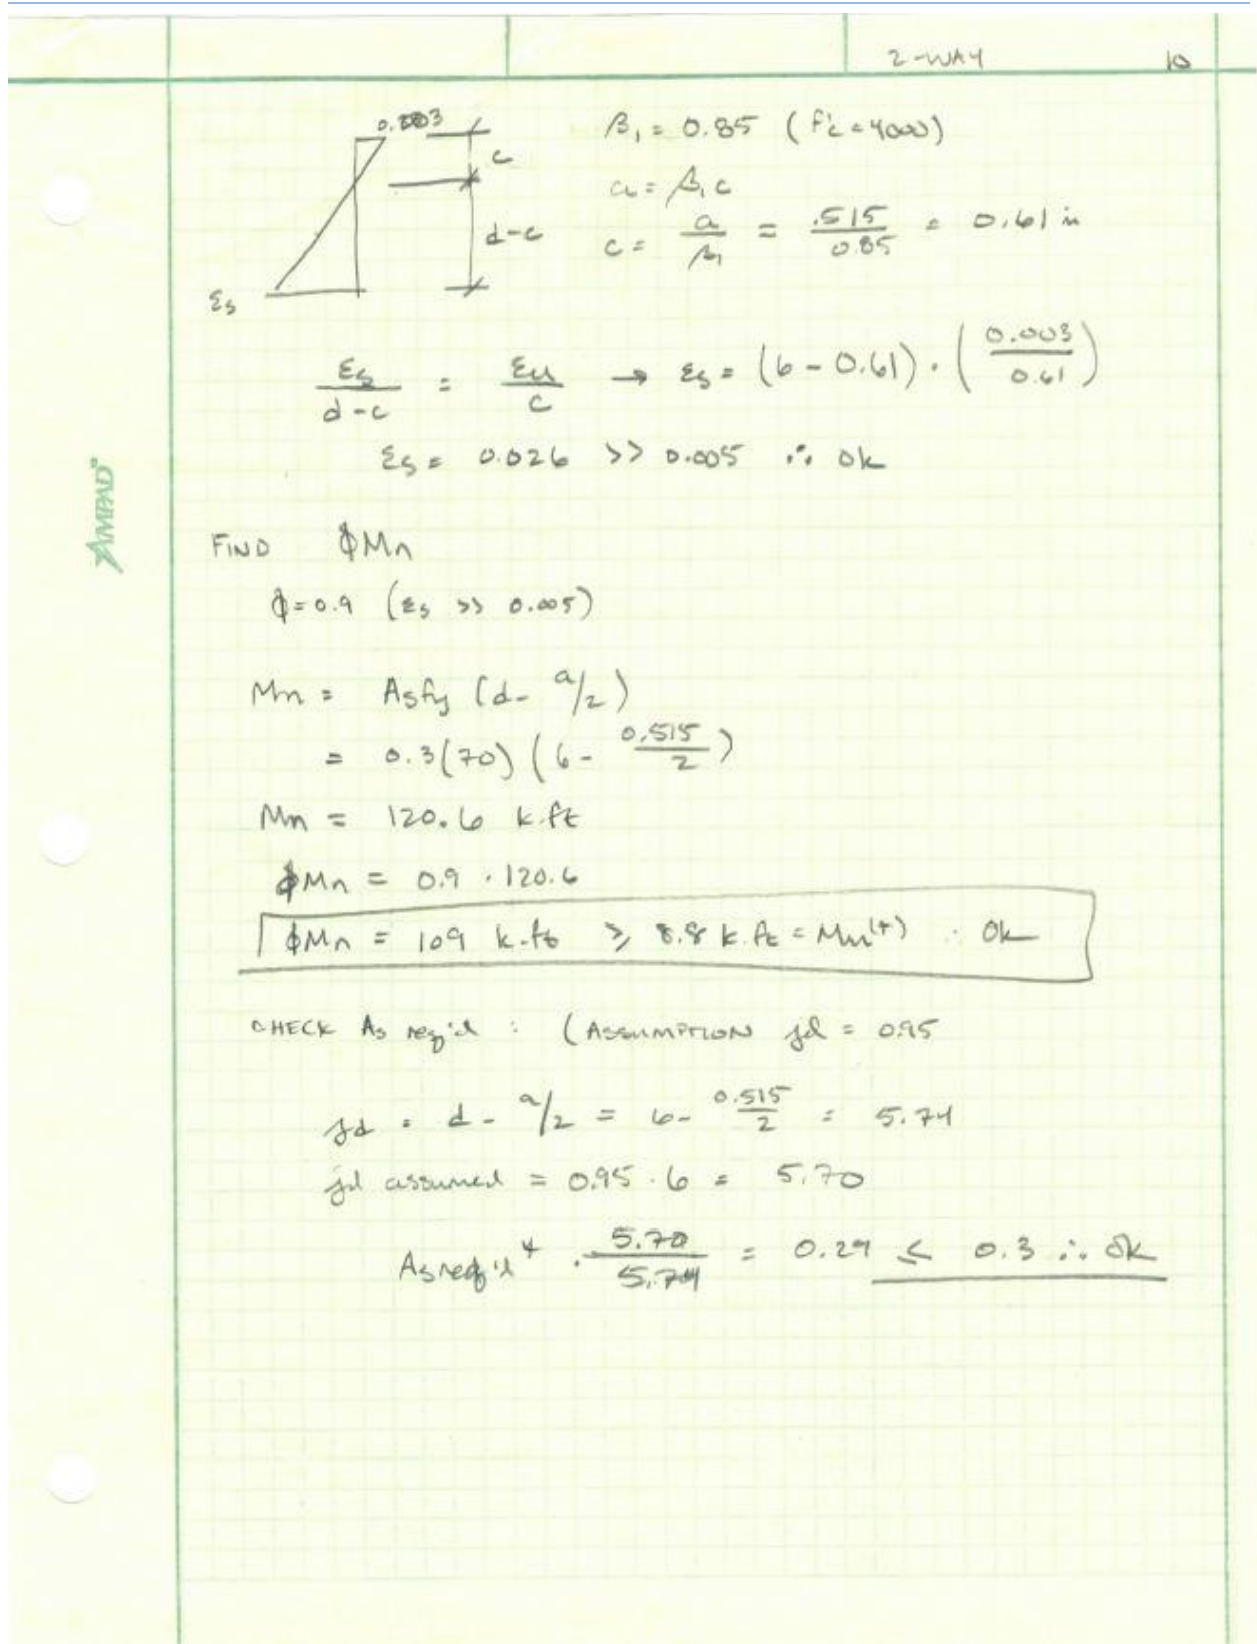 2-WAY 10
0.003
c
d-c
εs
β₁ = 0.85 (f'c = 4000)
a = β₁c
c = a/β₁ = .515/0.85 = 0.61 in
εs/(d-c) = εu/c → εs = (6 - 0.61) · (0.003/0.61)
εs = 0.026 >> 0.005 ∴ ok
AMPAD
FIND ϕMn
ϕ = 0.9 (εs >> 0.005)
Mn = Asfy (d - a/2)
= 0.3(70) (6 - 0.515/2)
Mn = 120.6 k·ft
ϕMn = 0.9 · 120.6
ϕMn = 109 k·ft ≥ 8.8 k·ft = Mu(+) ∴ Ok
CHECK As req'd : (ASSUMPTION jd = 0.95
jd = d - a/2 = 6 - 0.515/2 = 5.74
jd assumed = 0.95 · 6 = 5.70
As req'd + · 5.70/5.74 = 0.29 ≤ 0.3 ∴ ok